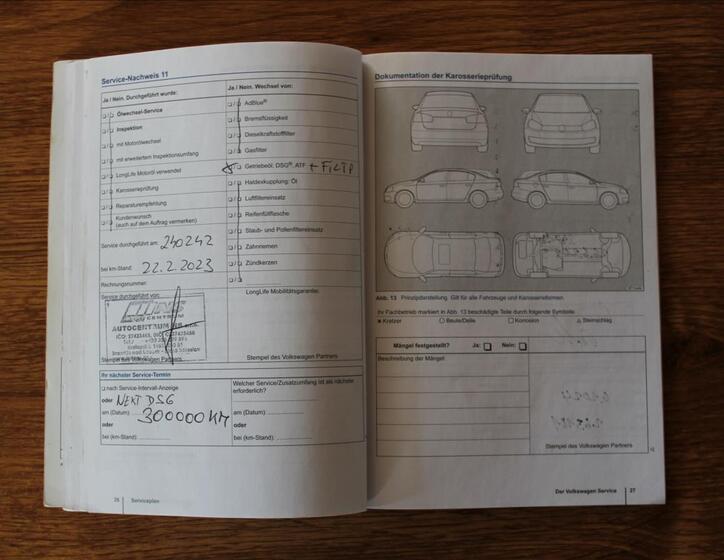 Service-Nachweis 11
Ja / Nein. Durchgeführt wurde:
Ölwechsel-Service
Inspektion
mit Motorölwechsel
mit erweitertem Inspektionsumfang
LongLife Motoröl verwendet
Karosserieprüfung
Reparaturempfehlung
Kundenwunsch
(auch auf dem Auftrag vermerken)
Service durchgeführt am: 240242
bei km-Stand: 22.2.2023
Rechnungsnummer:
Service durchgeführt von:
AUTOCENTRUM
Stempel des Volkswagen Partners
Ja / Nein. Wechsel von:
AdBlue®
Bremsflüssigkeit
Dieselkraftstofffilter
Gasfilter
Getriebeöl, DSG®, ATF + FILTR
Haldexkupplung: Öl
Luftfiltereinsatz
Reifenfüllflasche
Staub- und Pollenfiltereinsatz
Zahnriemen
Zündkerzen
LongLife Mobilitätsgarantie:
Stempel des Volkswagen Partners
Ihr nächster Service-Termin
nach Service-Intervall-Anzeige
oder NEXT DSG
am (Datum) 300000 KM
oder
bei (km-Stand):
Welcher Service/Zusatzumfang ist als nächster
erforderlich?
am (Datum):
oder
bei (km-Stand):
26 Serviceplan
Dokumentation der Karosserieprüfung
Abb. 13 Prinzipdarstellung. Gilt für alle Fahrzeuge und Karosserieformen.
Ihr Fachbetrieb markiert in Abb. 13 beschädigte Teile durch folgende Symbole:
Kratzer Beule/Delle Korrosion Steinschlag
Mängel festgestellt? Ja: Nein:
Beschreibung der Mängel:
Stempel des Volkswagen Partners
Der Volkswagen Service 27